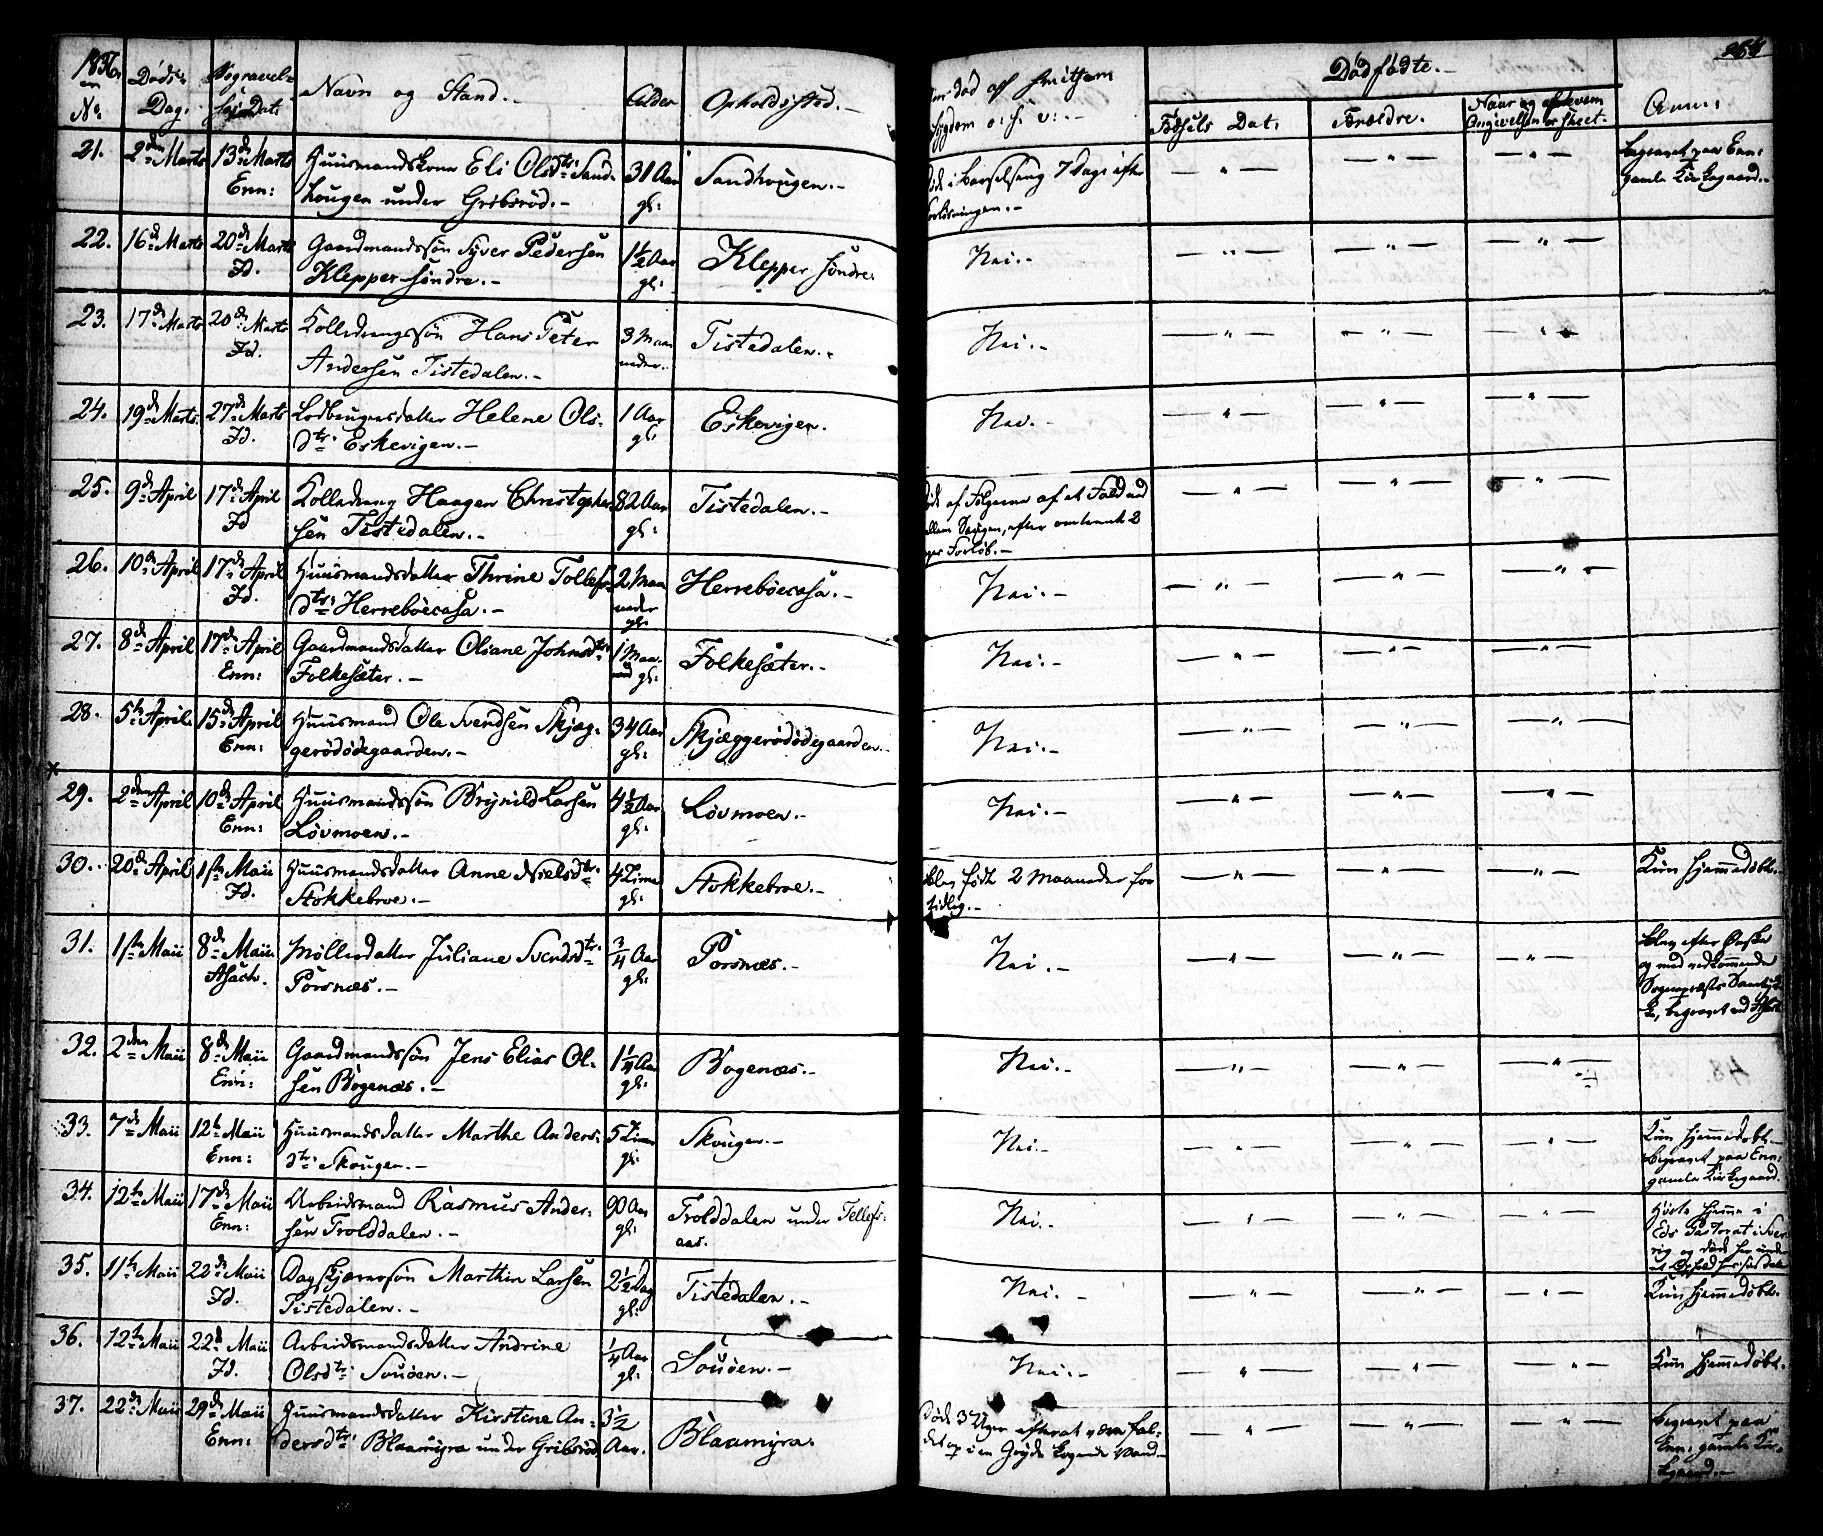 1836.
No:
Døds-
Dag:
Begravel-
ses Dat:
Navn og Stand.-
Alder
Opholdssted.-
Om død af smitsom
Sygdom o: s: v:.-
Dødfødte.-
Fødsels Dat:
Forældre.
Naar og af hvem
Angivelsen er skeet.-
Anm:
21. 2den Marts 13de Marts Huusmandskone Eli Olsdtr: Sand- 31 Aar Sandhougen.-
Enn: hougen under Gribsrød.- gl:
Død i Barselseng 7 Dage efter
Forløsningen.-
begravet paa Enn:
gamle Kirkegaard.-
22. 16de Marts 20de Marts Gaardmandssøn Syver Pedersen 1½ Aar Klepper søndre. Nei.-
Id. Klepper søndre.- gl:
23. 17de Marts 20de Marts Kulledrengssøn Hans Peter 3 Maa- Tistedalen.- Nei.-
Id. Andersen Tistedalen.- neder.
24. 19de Marts 27de Marts Helene Ols- 1 Aar Eskevigen. Nei.-
Id. dtr: Eskevigen.- gl:
25. 9de April 17de April Haagen Christopher- 82 Aar Tistedalen.-
Id sen Tistedalen.- gl:
Død af Følgerne af et Fald ned
efter omtrent 2
Forløb.-
26. 10de April 17de April Huusmandsdatter Thrine Tollefs- 2 Maa- Herrebøecasa.- Nei.-
Id. dtr: Herrebøecasa.- neder
gl:
27. 8de April 17de April Gaardmandsdatter Oliane Johnsdtr: 1 Maa- Folkesæter.- Nei.-
Enn: Folkesæter.- ned gl:
28. 5te April 15de April Huusmand Ole Svendsen Skjæg- 34 Aar Skjæggerødødegaarden.- Nei.-
Enn: gerødødegaarden.- gl:
29. 2den April 10de April Huusmandssøn Brynild Larsen 4½ Aar Løvmoen.- Nei.-
Enn: Løvmoen.- gl:
30. 20de April 1ste Maii Huusmandsdatter Anne Nielsdtr: 4 Timer Stokkebroe.-
Id. Stokkebroe.- gl:
blev født 2 Maaneder for
tidlig.-
Kun hjemmedøbt.-
31. 1ste Maii 8de Maii Møllerdatter Juliane Svendsdtr: ¾ Aar Porsnæs.- Nei.-
Asach. Porsnæs.- gl:
blev efter Ønske
og med vedkommende
Sognepræsts Samtyk-
ke, begravet ved Asach.
32. 2den Maii 8de Maii Gaardmandssøn Jens Elias Ol- 1¼ Aar Bøgenæs.- Nei.-
Enn: sen Bøgenæs.- gl:
33. 7de Maii 12te Maii Huusmandsdatter Marthe Anders- 5 Timer Skougen.- Nei.-
Enn: dtr: Skougen.- gl:
Kun hjemmedøbt.-
begravet paa Enn:
gamle Kirkegaard.
34. 12te Maii 17de Maii Arbeidsmand Rasmus Ander- 90 Aar Trolddalen under Tellefs-
Enn: sen Trolddalen.- gl: aas. Nei.-
Hørte hjemme i
Eds Pastorat i Sver-
rig og døde her under
35. 11te Maii 22de Maii Dagskjærersøn Marthin Larsen 2½ Dag Tistedalen.- Nei.-
Id. Tistedalen.- gl:
Kun hjemmedøbt.
36. 12te Maii 22de Maii Arbeidsmandsdatter Andrine ¼ Aar Souøen.- Nei.-
Id. Olsdtr: Souøen.- gl:
Kun hjemmedøbt.
37. 22de Maii 29de Maii Huusmandsdatter Kirstene An- 3½ Blaamyra.
Enn: dersdtr: Blaamyra under Gribsrød Aar.
Død 3 Uger efter at være fal-
det op i en Gryde kogende Vand.-
begravet paa
Enn: gamle Kir-
kegaard.-